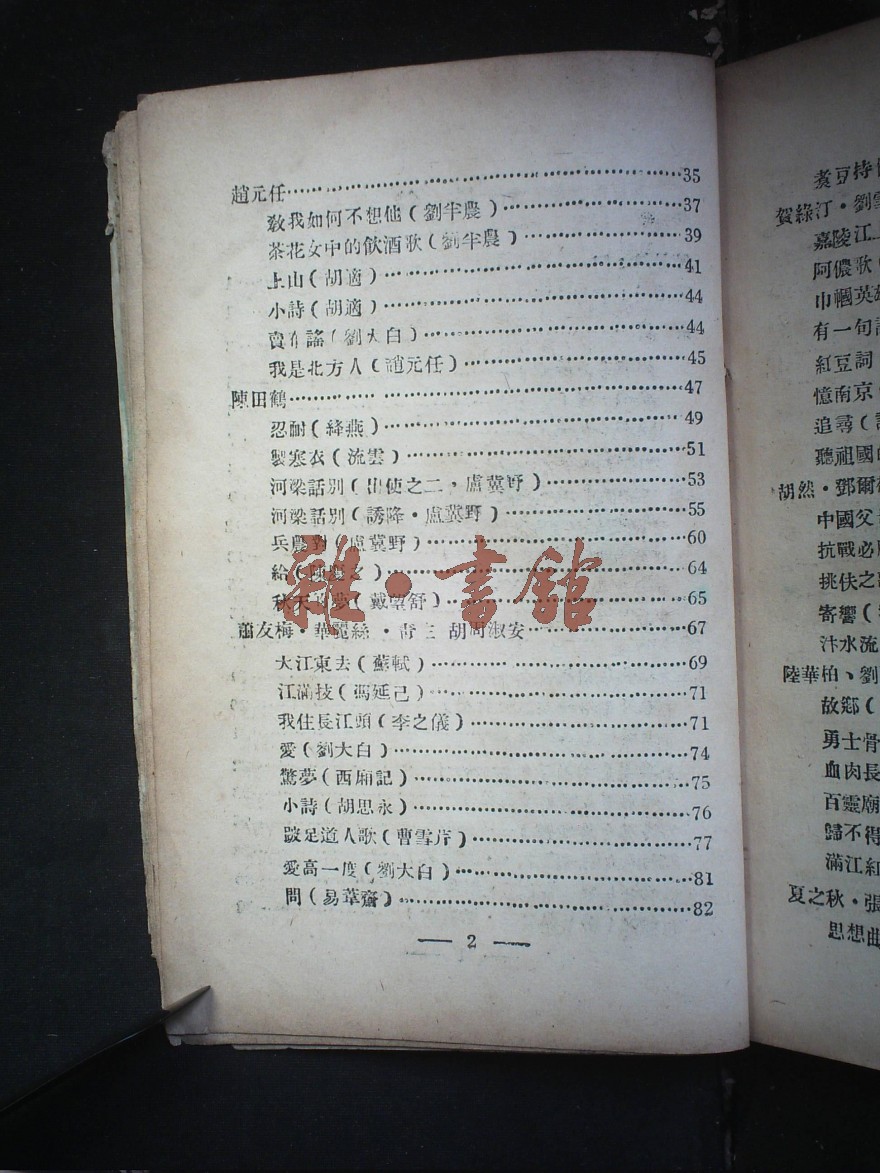 趙元任…………35
敎我如何不想他(劉半農)…………37
茶花女中的飲酒歌(劉半農)…………39
上山(胡適)…………41
小詩(胡適)…………44
賣布謠(劉大白)…………44
我是北方人(趙元任)…………45
陳田鶴…………47
忍耐(絳燕)…………49
製寒衣(流雲)…………51
河梁話別(出使之二,盧冀野)…………53
河梁話別(誘降·盧冀野)…………55
兵農對(盧冀野)…………60
給(陳)…………64
秋天的夢(戴望舒)…………65
蕭友梅·華麗絲·青主 胡周淑安…………67
大江東去(蘇軾)…………69
江滿技(馮延己)…………71
我住長江頭(李之儀)…………71
愛(劉大白)…………74
驚夢(西廂記)…………75
小詩(胡思永)…………76
跛足道人歌(曹雪芹)…………77
愛高一度(劉大白)…………81
問(易韋齋)…………82
— 2 —
雅·書館
煮豆持
賀綠汀·劉雪
嘉陵江上
阿儂歌(
巾幗英雄
有一句
紅豆詞
憶南京(
追尋(
聽祖國的
胡然·鄧爾
中國父
抗戰必
挑伕之
寄響(
汴水流
陸華柏、劉
故鄕(
勇士骨
血肉長
百靈廟
歸不得
滿江紅
夏之秋·張
思想曲